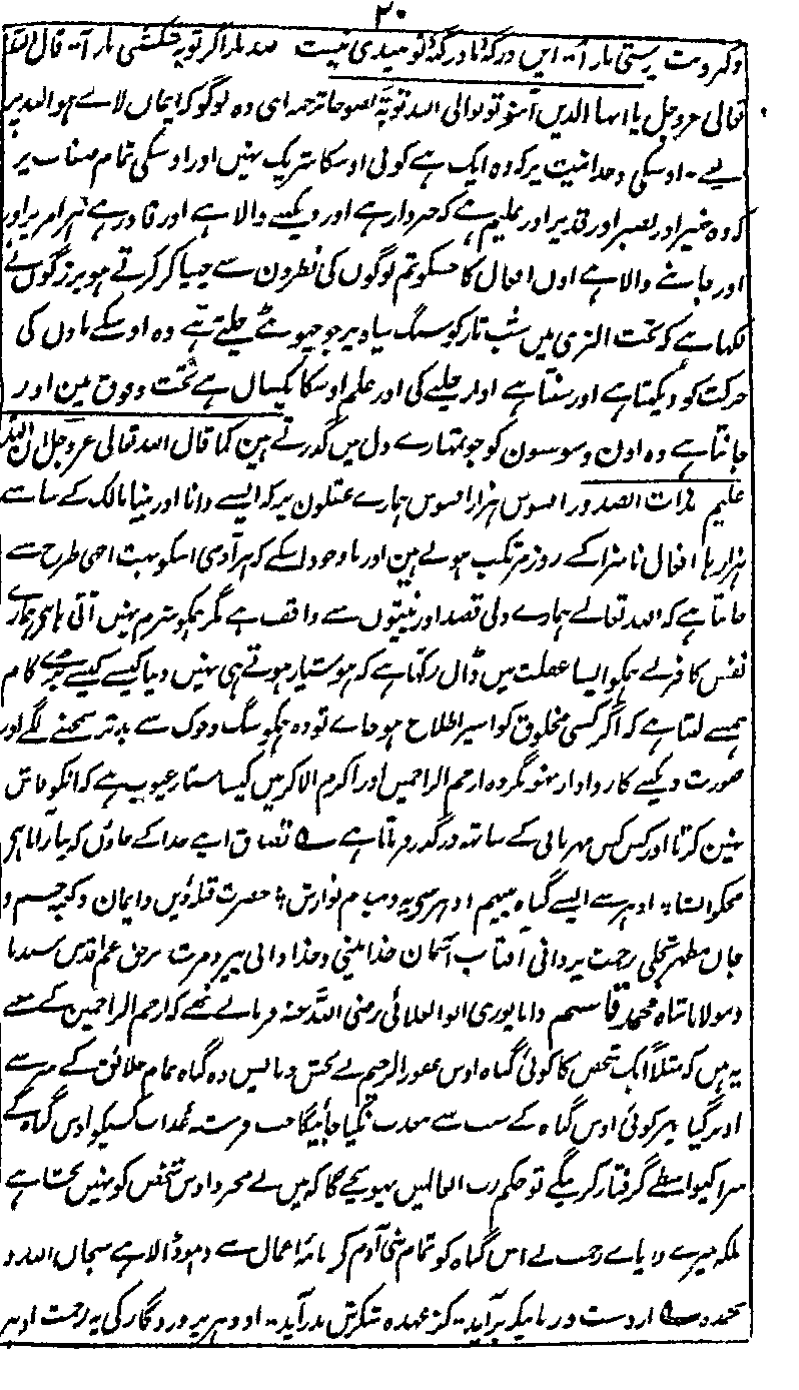 ۲۰
وگبر وبت پرستی باز آ۔ ایں درگۂ ما درگۂ نومیدی نیست صد بار اگر توبہ شکستی باز آ۔ قال اللہ
تعالی عزوجل یا ایہا الذین آمنو توبوالی اللہ توبۃً نصوحا ترجمہ ای وہ لوگو کہ ایمان لائے ہو اللہ پر
یعنے۔ اوسکی وحدانیت پر کہ وہ ایک ہے کوئی اوسکا شریک نہیں اور اوسکی تمام صفات پر
کہ وہ خبیر اور بصیر اور قدیر اور علیم ہے کہ خبردار ہے اور دیکھنے والا ہے اور قادر ہے ہر امر پر اور
اور جاننے والا ہے اون افعال کا جسکو تم لوگوں کی نظرون سے چھپا کر کرتے ہو بزرگوں نے
لکھا ہے کہ تحت الثری میں شب تار کو سنگ سیاہ پر جو چیونٹے چلتی ہے وہ اوسکے پاؤں کی
حرکت کو دیکھتا ہے اور سنتا ہے آواز چلنے کی اور علم اوسکا یکساں ہے تحت وفوق مین اور
جانتا ہے وہ اون وسوسون کو جو تمہارے دل میں گذرتے ہین کما قال اللہ تعالی عزوجل ان اللہ
علیم بذات الصدور افسوس ہزار افسوس ہمارے عقلون پر کہ ایسے دانا اور بینا مالک کے سامنے
ہزارہا افعال ناسزا کے روز مرتکب ہوتے ہین اور باوجود اسکے کہ ہر آدمی اسکو بہت اچھی طرح سے
جانتا ہے کہ اللہ تعالے ہمارے دلی قصد اور نیتوں سے واقف ہے مگر ہمکو شرم نہیں آتی ہا پھر ہمارے
نفس کافر نے ہمکو ایسا غفلت میں ڈال رکھا ہے کہ ہوشیار ہوتے ہی نہیں دیتا کیسے کیسے برے کام
ہمسے لیتا ہے کہ اگر کسی مخلوق کو اسپر اطلاع ہو جاے تو وہ ہمکو سگ وخوک سے بدتر سمجھنے لگے اور
صورت دیکھنے کا روادار نہو مگر وہ ارحم الراحمین اور اکرم الاکرمین کیسا ستار عیوب ہے کہ انکو فاش
نہین کرتا اور کس کس مہربانی کے ساتھ درگذر فرماتا ہے ؎ تصدق اپنے خدا کے جاؤں کہ پیار آتا ہی
مجکو انشا۔ ادہر سے ایسے گناہ پیہم اودہر سے یہ دمبدم نوازش ؛ حضرت قبلۂ دین وایمان وکعبۂ جسم و
جان مظہر تجلی رحمت یزدانی آفتاب آسمان خدابینی وخدا دانی پیر ومرشد برحق عم اقدس سیدنا
ومولانا شاہ محمد قاسم دانا پوری ابوالعلائی رضی اللہ عنہ فرماتے تھے کہ ارحم الراحمین کے معنے
یہ ہیں کہ مثلاً ایک شخص کا کوئی گناہ اوس غفور الرحیم نے بخش دیا بس وہ گناہ تمام خلائق کے سر سے
اوتر گیا پھر کوئی اوس گناہ کے سبب سے معذب نکیا جائیگا جب فرشتۂ عذاب کسیکو اوس گناہ کے
سزا کیواسطے گرفتار کرینگے تو حکم رب العالمیں پہونچے گا کہ میں نے مجرد اوس شخص کو نہیں بخشا ہے
بلکہ میرے دریاے رحمت نے اس گناہ کو تمام بنی آدم کر نامۂ اعمال سے دہو ڈالا ہے سبحان اللہ و
بحمدہ ؎ از دست وزبان کہ برآید۔ کز عہدہ شکرش بدرآید۔ اودہر پروردگار کی یہ رحمت ادہر